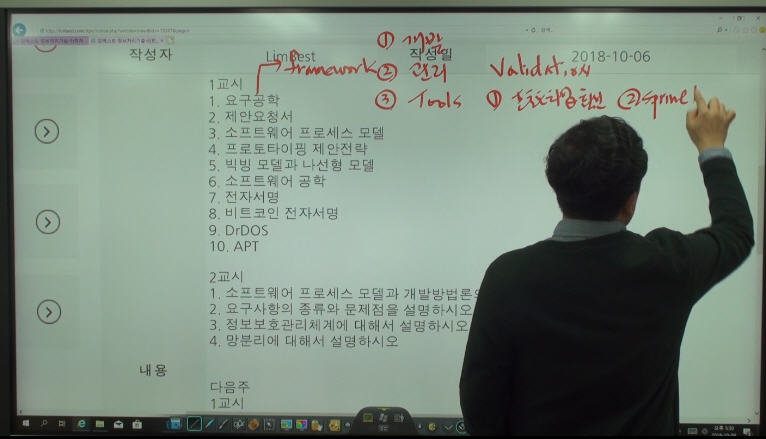 작성자 LimBest 작성일 2018-10-06
① 개발
framework ② 관리 Validation
③ Tools ① 프로토타입 확인 ②
1교시
1. 요구공학
2. 제안요청서
3. 소프트웨어 프로세스 모델
4. 프로토타이핑 제안전략
5. 빅빙 모델과 나선형 모델
6. 소프트웨어 공학
7. 전자서명
8. 비트코인 전자서명
9. DrDOS
10. APT
2교시
1. 소프트웨어 프로세스 모델과 개발방법론의
2. 요구사항의 종류와 문제점을 설명하시오
3. 정보보호관리체계에 대해서 설명하시오
4. 망분리에 대해서 설명하시오
내용
다음주
1교시